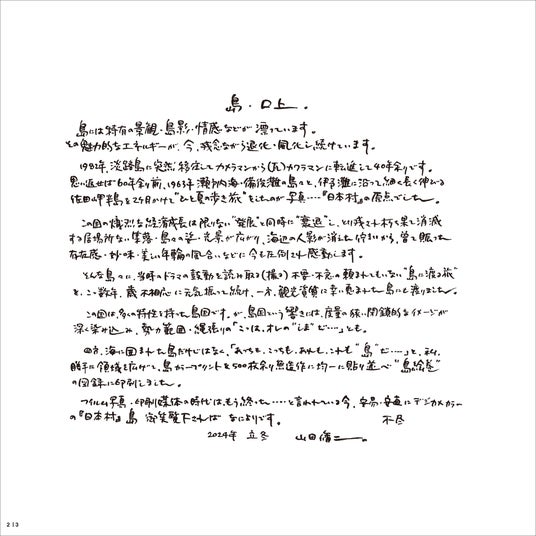 島・口上。
島には特有の景観・島影・情感などが漂っています。
その魅力的なエネルギーが、今、残念ながら退化・風化し続けています。
1982年、淡路島に突然移住してカメラマンから(瓦)カワラマンに転進して40年余りです。
思い返せば60年余り前、1963年瀬戸内海・備後灘の島々と、伊予灘に沿って細く長く伸びる
佐田岬半島を2ヶ月かけて"ひと夏の歩き旅"をしたのが写真‥‥『日本村』の原点でした。
この国の熾烈な経済成長は限りない"発展"と同時に"衰退"し、とり残され朽ち果て消滅
する居場所ない集落・島々の姿・光景が広がり、海辺の人影が消えた佇まいから、曽て賑った
存在感・妙味・美しい年輪の風合いなどに今も圧倒され感動します。
そんな島々に、当時のドラマの鼓動を読み取る(撮る)不要・不急の頼まれてもいない"島に渡る旅"
を、この数年、歳不相応に元気振って続け、一方、観光資質に幸い恵まれた島にも渡りました。
この国は、多くの特性を持った島国です。が、島国という響きには、度量の狭い閉鎖的なイメージが
深く染み込み、勢力範囲・縄張りの「ここは、オレの"しま"だ‥‥」とも。
四方、海に囲まれた島だけではなく、「あっちも、こっちも、あれも、これも"島"だ‥‥」と、私、
勝手に領域を広げて、島がープリントを500枚余り無造作に均一に貼り並べ"島絵巻"
の図録に印刷しました。
フィルム写真・印刷媒体の時代は、もう終った‥‥と言われている今、安易・安直にデジカメカラー
の『日本村』島 御笑覧下されば なによりです。 不尽
2024年 立冬 山田脩二
213